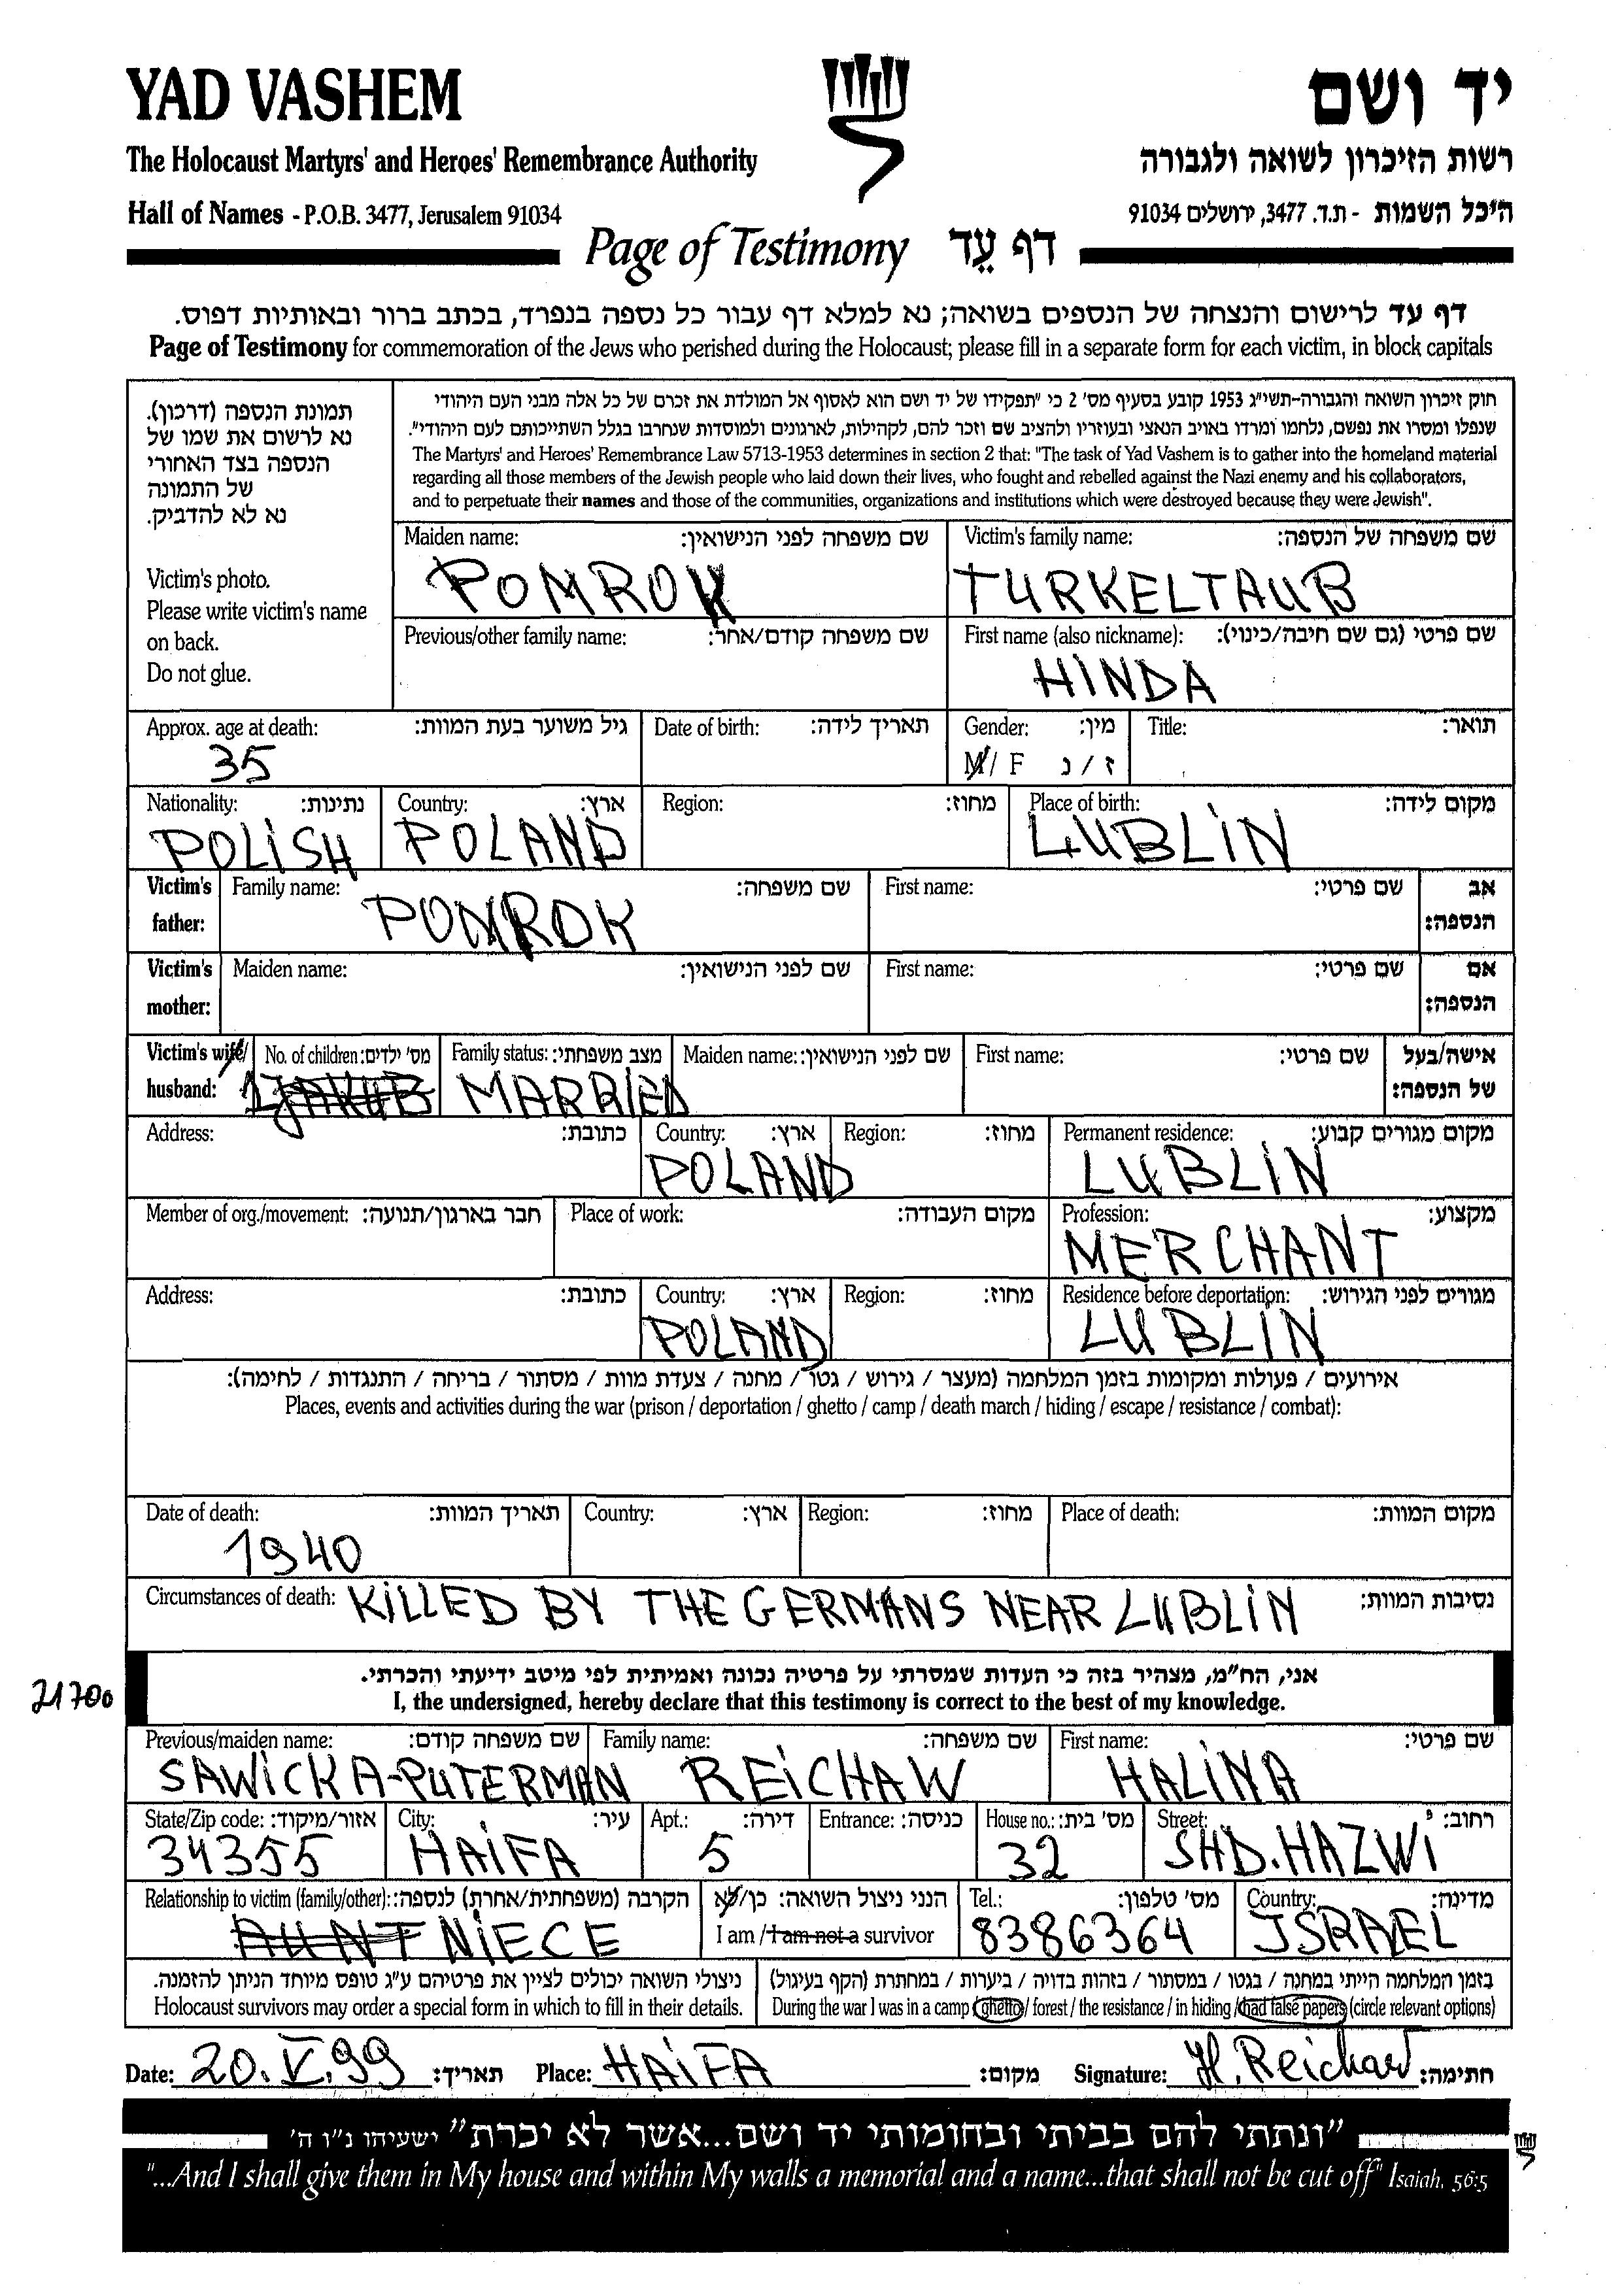 YAD VASHEM
יד ושם
The Holocaust Martyrs' and Heroes' Remembrance Authority
רשות הזיכרון לשואה ולגבורה
Hall of Names - P.O.B. 3477, Jerusalem 91034
היכל השמות - ת.ד. 3477, ירושלים 91034
Page of Testimony דף עֵד
דף עד לרישום והנצחה של הנספים בשואה; נא למלא דף עבור כל נספה בנפרד, בכתב ברור ובאותיות דפוס.
Page of Testimony for commemoration of the Jews who perished during the Holocaust; please fill in a separate form for each victim, in block capitals
תמונת הנספה (דרכון).
נא לרשום את שמו של
הנספה בצד האחורי
של התמונה
נא לא להדביק.
Victim's photo.
Please write victim's name
on back.
Do not glue.
חוק זיכרון השואה והגבורה-תשי"ג 1953 קובע בסעיף מס' 2 כי "תפקידו של יד ושם הוא לאסוף אל המולדת את זכרם של כל אלה מבני העם היהודי
שנפלו ומסרו את נפשם, נלחמו ומרדו באויב הנאצי ובעוזריו ולהציב שם וזכר להם, לקהילות, לארגונים ולמוסדות שנחרבו בגלל השתייכותם לעם היהודי".
The Martyrs' and Heroes' Remembrance Law 5713-1953 determines in section 2 that: "The task of Yad Vashem is to gather into the homeland material
regarding all those members of the Jewish people who laid down their lives, who fought and rebelled against the Nazi enemy and his collaborators,
and to perpetuate their names and those of the communities, organizations and institutions which were destroyed because they were Jewish".
Maiden name: שם משפחה לפני הנישואין: Victim's family name: שם משפחה של הנספה:
POMROK TURKELTAUB
Previous/other family name: שם משפחה קודם/אחר: First name (also nickname): שם פרטי (גם שם חיבה/כינוי):
HINDA
Approx. age at death: גיל משוער בעת המוות: Date of birth: תאריך לידה: Gender: מין: Title: תואר:
35 M/ F ז / נ
Nationality: נתינות: Country: ארץ: Region: מחוז: Place of birth: מקום לידה:
POLISH POLAND LUBLIN
Victim's father: Family name: שם משפחה: First name: שם פרטי: אב הנספה:
POMROK
Victim's mother: Maiden name: שם לפני הנישואין: First name: שם פרטי: אם הנספה:
Victim's wife/ husband: No. of children: מס' ילדים: Family status: מצב משפחתי: Maiden name: שם לפני הנישואין: First name: שם פרטי: אישה/בעל של הנספה:
1 JAKUB MARRIED
Address: כתובת: Country: ארץ: Region: מחוז: Permanent residence: מקום מגורים קבוע:
POLAND LUBLIN
Member of org./movement: חבר בארגון/תנועה: Place of work: מקום העבודה: Profession: מקצוע:
MERCHANT
Address: כתובת: Country: ארץ: Region: מחוז: Residence before deportation: מגורים לפני הגירוש:
POLAND LUBLIN
אירועים / פעולות ומקומות בזמן המלחמה (מעצר / גירוש / גטו / מחנה / צעדת מוות / מסתור / בריחה / התנגדות / לחימה):
Places, events and activities during the war (prison / deportation / ghetto / camp / death march / hiding / escape / resistance / combat):
Date of death: תאריך המוות: Country: ארץ: Region: מחוז: Place of death: מקום המוות:
1940
Circumstances of death: KILLED BY THE GERMANS NEAR LUBLIN נסיבות המוות:
אני, הח"מ, מצהיר בזה כי העדות שמסרתי על פרטיה נכונה ואמיתית לפי מיטב ידיעתי והכרתי.
21700
I, the undersigned, hereby declare that this testimony is correct to the best of my knowledge.
Previous/maiden name: שם משפחה קודם: Family name: שם משפחה: First name: שם פרטי:
SAWICKA-PUTERMAN REICHAW HALINA
State/Zip code: אזור/מיקוד: City: עיר: Apt.: דירה: Entrance: כניסה: House no.: מס' בית: Street: רחוב:
34355 HAIFA 5 32 SHD.HAZWI
Relationship to victim (family/other): הקרבה (משפחתית/אחרת) לנספה: הנני ניצול השואה: כן/לא Tel.: מס' טלפון: Country: מדינה:
AUNT NIECE I am / I am not a survivor 8386364 ISRAEL
ניצולי השואה יכולים לציין את פרטיהם ע"ג טופס מיוחד הניתן להזמנה. בזמן המלחמה הייתי במחנה / בגטו / במסתור / בזהות בדויה / ביערות / במחתרת (הקף בעיגול)
Holocaust survivors may order a special form in which to fill in their details. During the war I was in a camp / ghetto / forest / the resistance / in hiding / had false papers (circle relevant options)
Date: 20.V.99 תאריך: Place: HAIFA מקום: Signature: H. Reichaw חתימה:
"ונתתי להם בביתי ובחומותי יד ושם...אשר לא יכרת" ישעיהו נ"ו ה'
"...And I shall give them in My house and within My walls a memorial and a name...that shall not be cut off" Isaiah, 56:5